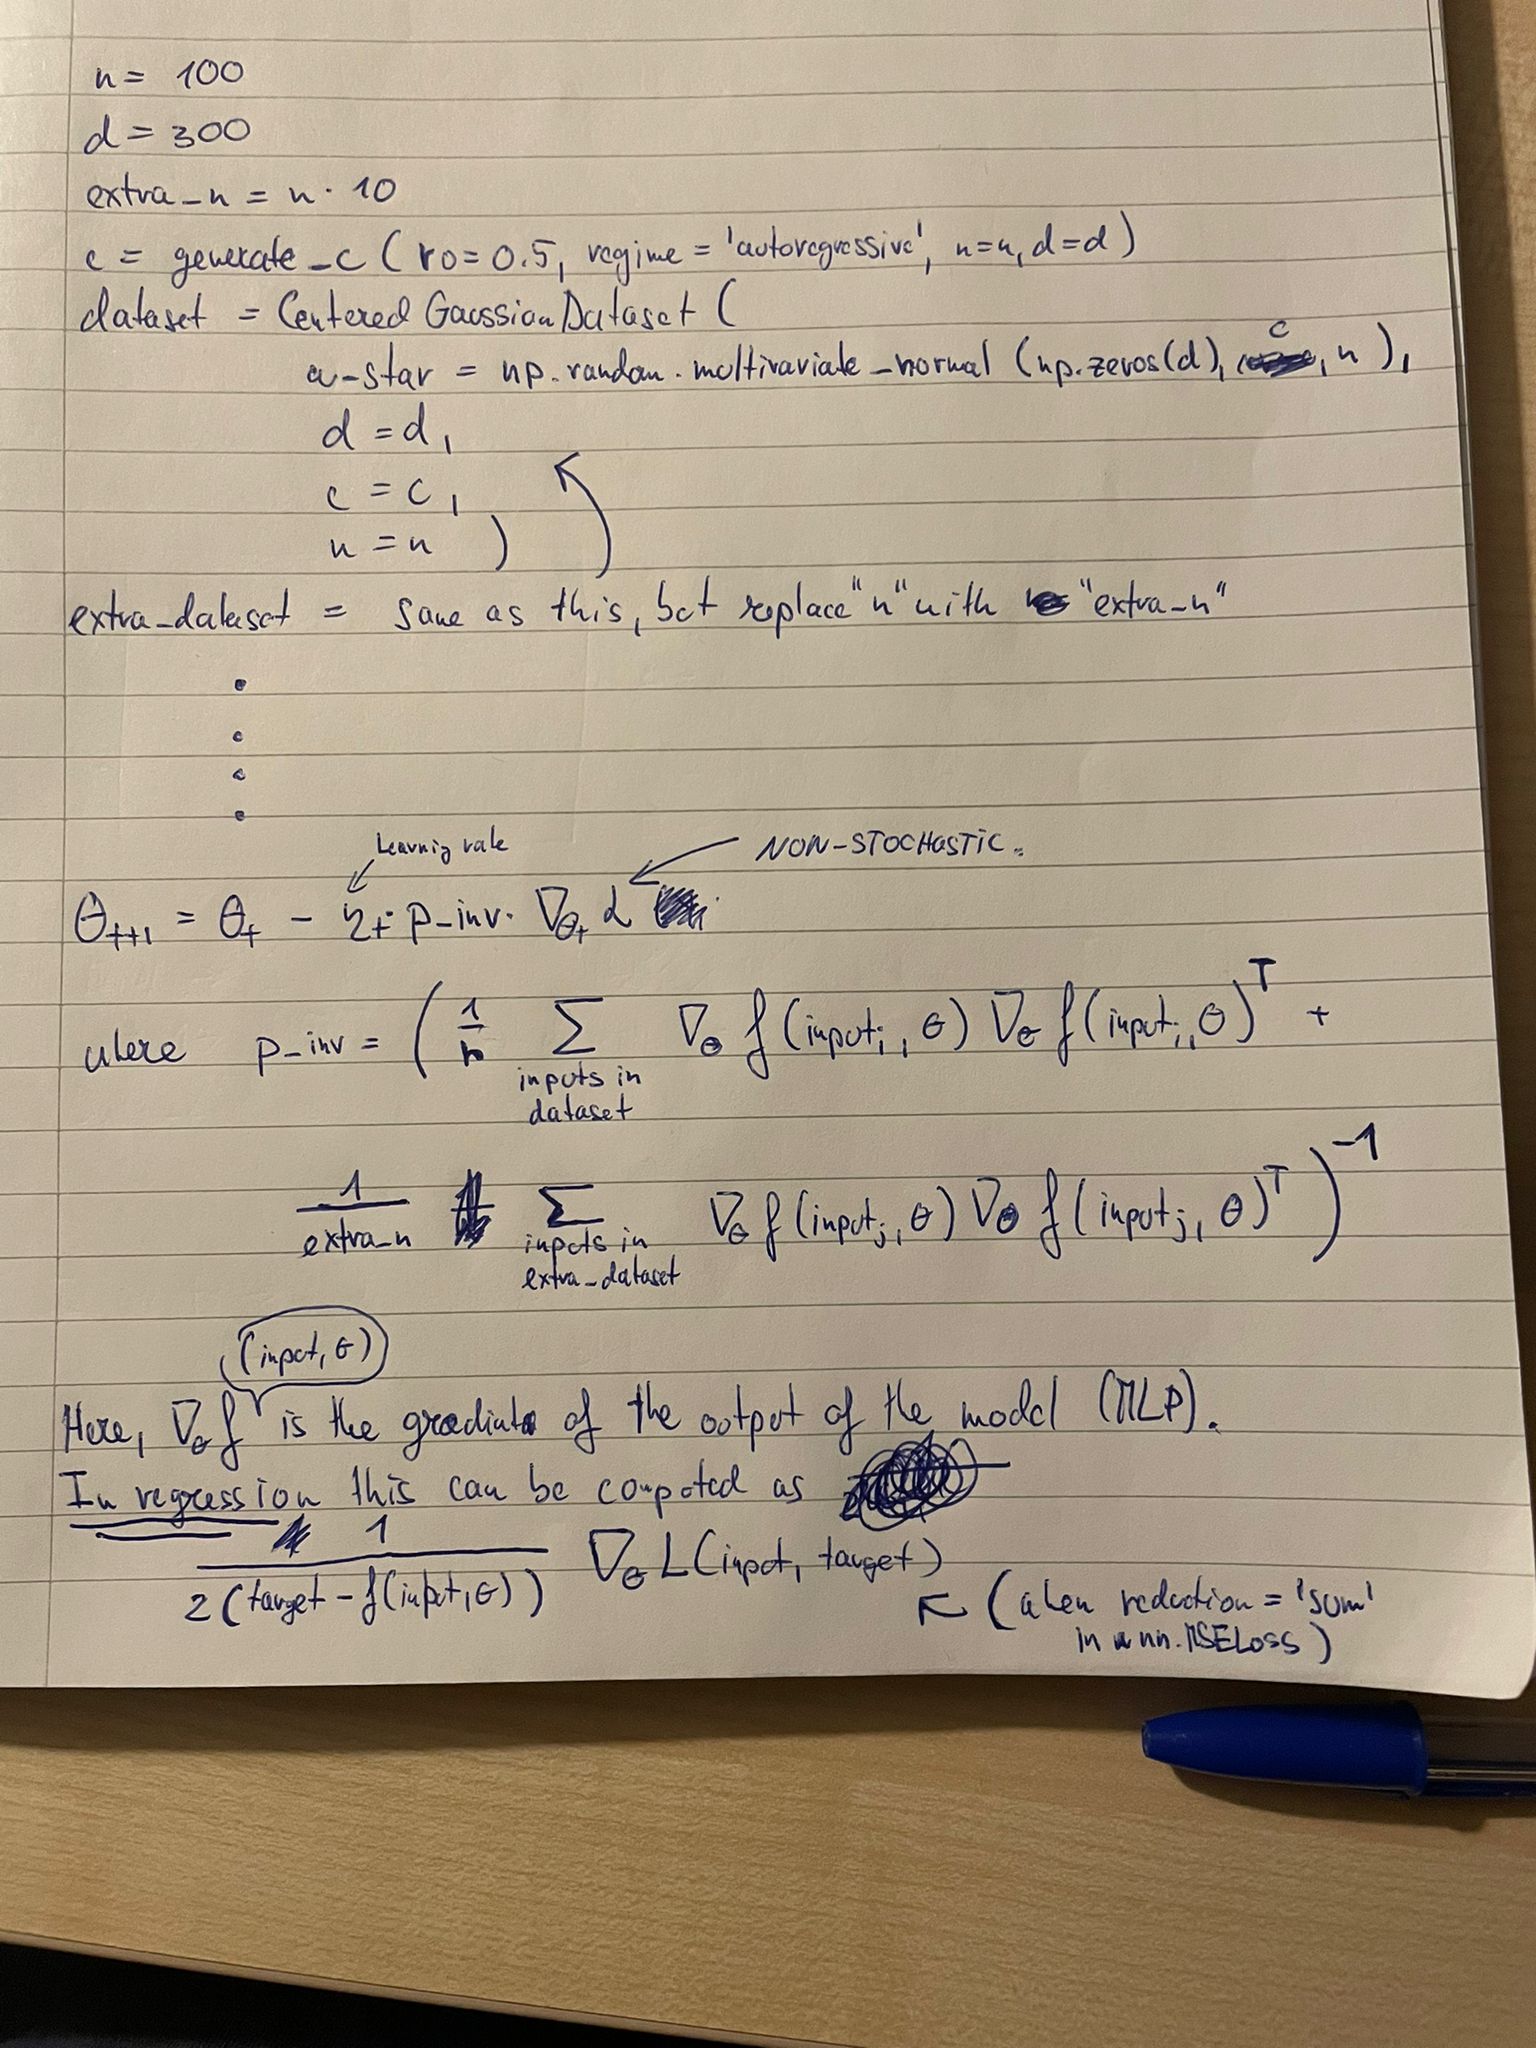 n = 100
d = 300
extra_n = n · 10
c = generate_c (ro = 0.5, regime = 'autoregressive', n=n, d=d)
dataset = CenteredGaussianDataset (
w-star = np.random.multivariate_normal (np.zeros(d), c, n),
d = d,
c = c,
n = n )
extra_dataset = same as this, but replace "n" with "extra_n"
Learning rate
NON-STOCHASTIC.
θₜ₊₁ = θₜ - ηₜ · p_inv · ∇θₜ L
where p_inv = ( 1/n Σ ∇θ f(inputᵢ, θ) ∇θ f(inputᵢ, θ)ᵀ +
inputs in
dataset
1/extra_n Σ ∇θ f(inputⱼ, θ) ∇θ f(inputⱼ, θ)ᵀ )⁻¹
inputs in
extra_dataset
(input, θ)
Here, ∇θ f is the gradient of the output of the model (MLP).
In regression this can be computed as
1 / 2(target - f(input, θ)) ∇θ L(input, target)
(when reduction = 'sum'
in nn.MSELoss)